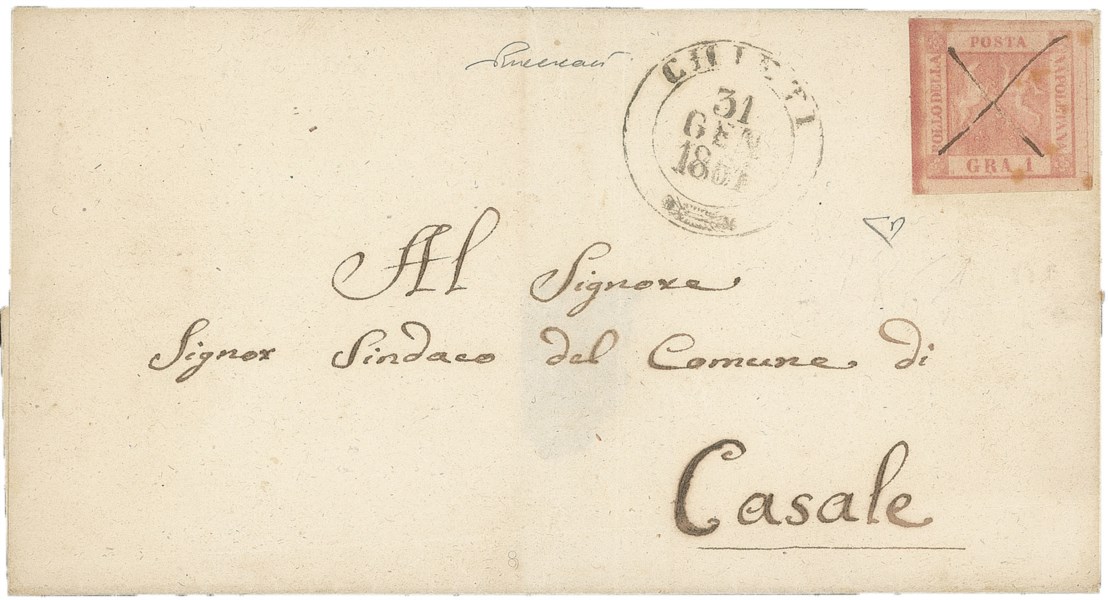 CHIETI
31
GEN
1861
POSTA
BOLLO DELLA
NAPOLETANA
GRA 1
Al Signore
Signor Sindaco del Comune di
Casale
8